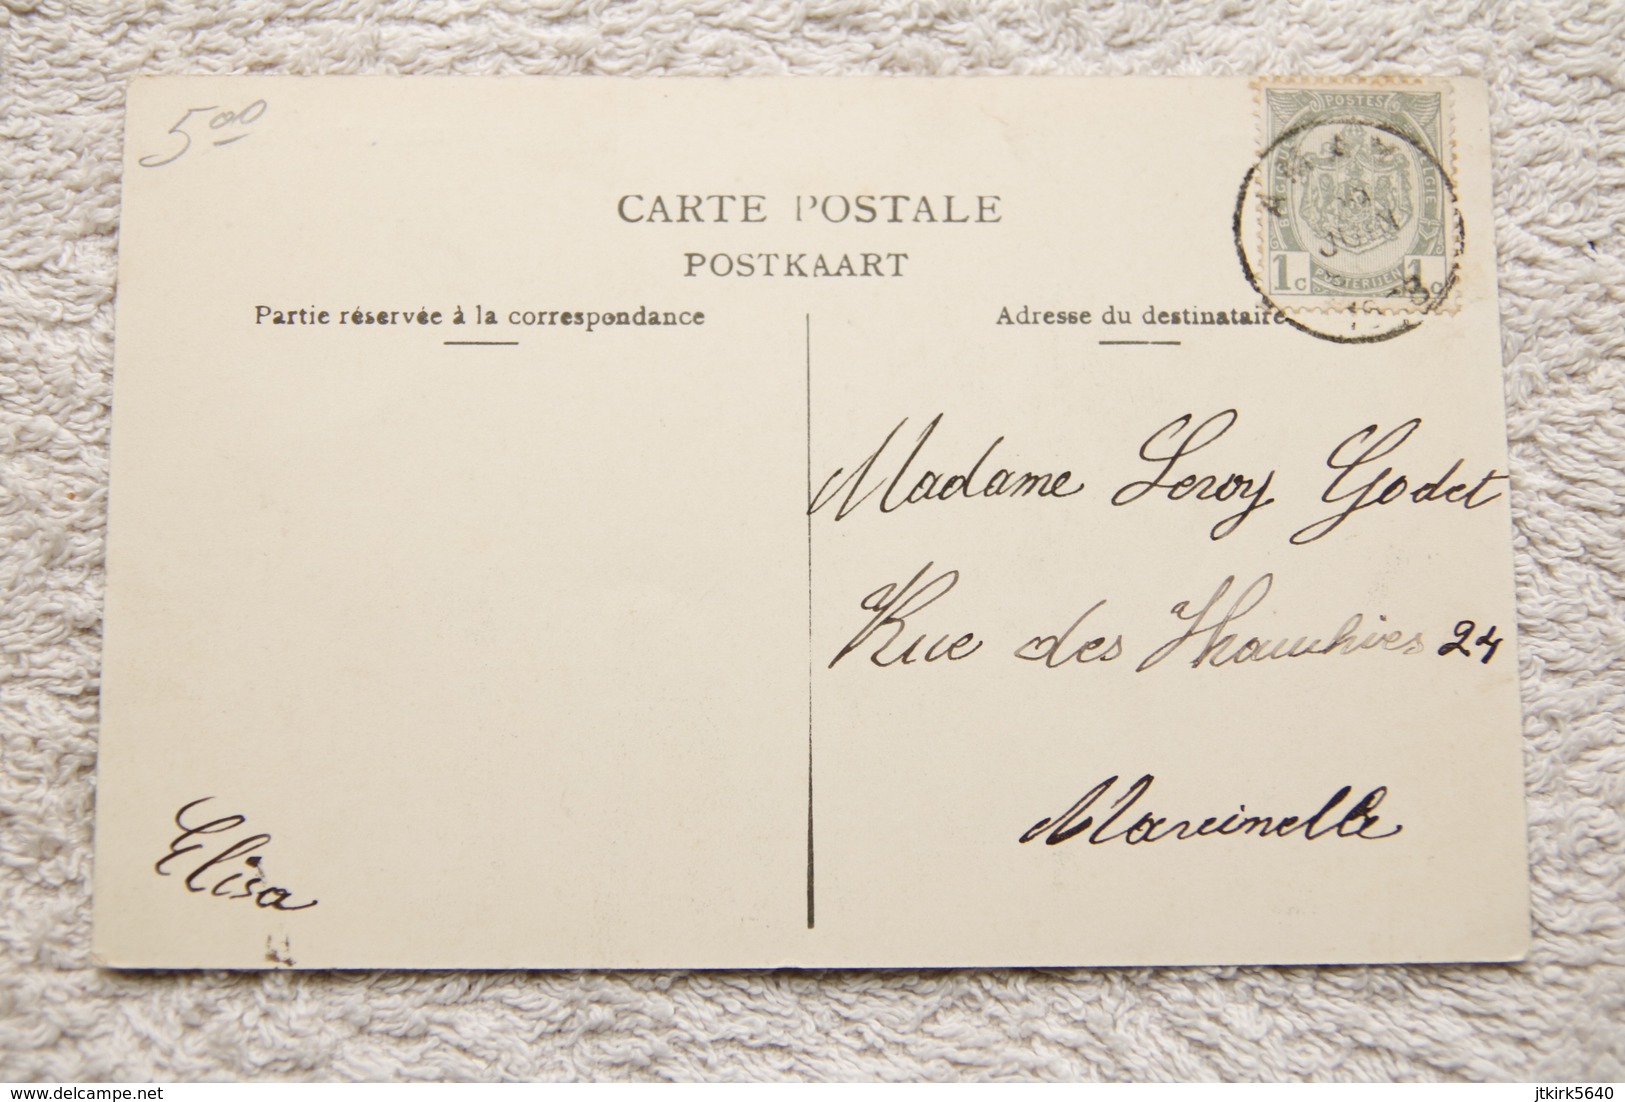 5 00
CARTE POSTALE
POSTKAART
Partie réservée à la correspondance
Adresse du destinataire
POSTES
1c POSTERIJEN 1c
Madame Leroy Godet
Rue des 24
Marcinelle
Elisa
delcampe.net
jtkirk5640